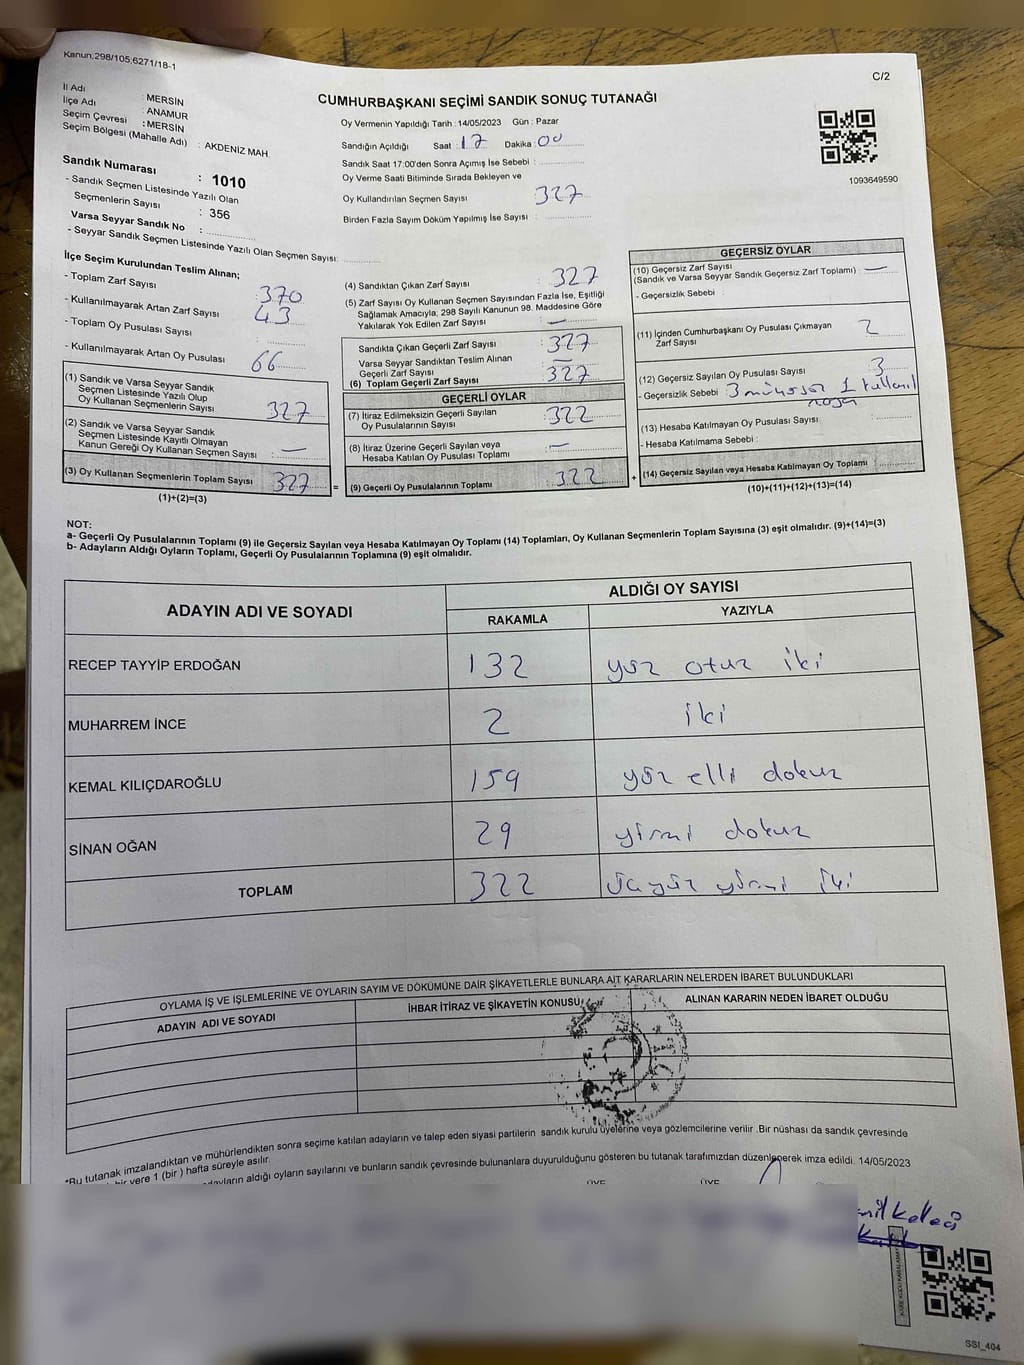 Kanun:298/105;6271/18-1
C/2
CUMHURBAŞKANI SEÇİMİ SANDIK SONUÇ TUTANAĞI
İl Adı : MERSİN
İlçe Adı : ANAMUR
Seçim Çevresi : MERSİN
Seçim Bölgesi (Mahalle Adı) : AKDENİZ MAH.
Sandık Numarası : 1010
- Sandık Seçmen Listesinde Yazılı Olan
Seçmenlerin Sayısı : 356
Varsa Seyyar Sandık No :
- Seyyar Sandık Seçmen Listesinde Yazılı Olan Seçmen Sayısı:
Oy Vermenin Yapıldığı Tarih : 14/05/2023 Gün : Pazar
Sandığın Açıldığı Saat : 17 Dakika : 00
Sandık Saat 17:00'den Sonra Açımış İse Sebebi :
Oy Verme Saati Bitiminde Sırada Bekleyen ve
Oy Kullandırılan Seçmen Sayısı : 327
Birden Fazla Sayım Döküm Yapılmış İse Sayısı :
1093649590
İlçe Seçim Kurulundan Teslim Alınan;
- Toplam Zarf Sayısı : 370
- Kullanılmayarak Artan Zarf Sayısı : 43
- Toplam Oy Pusulası Sayısı :
- Kullanılmayarak Artan Oy Pusulası 66
(1) Sandık ve Varsa Seyyar Sandık
Seçmen Listesinde Yazılı Olup
Oy Kullanan Seçmenlerin Sayısı 327
(2) Sandık ve Varsa Seyyar Sandık
Seçmen Listesinde Kayıtlı Olmayan
Kanun Gereği Oy Kullanan Seçmen Sayısı : —
(3) Oy Kullanan Seçmenlerin Toplam Sayısı 327
(1)+(2)=(3)
(4) Sandıktan Çıkan Zarf Sayısı : 327
(5) Zarf Sayısı Oy Kullanan Seçmen Sayısından Fazla İse, Eşitliği
Sağlamak Amacıyla; 298 Sayılı Kanunun 98. Maddesine Göre
Yakılarak Yok Edilen Zarf Sayısı : —
Sandıkta Çıkan Geçerli Zarf Sayısı : 327
Varsa Seyyar Sandıktan Teslim Alınan
Geçerli Zarf Sayısı : —
(6) Toplam Geçerli Zarf Sayısı : 327
GEÇERLİ OYLAR
(7) İtiraz Edilmeksizin Geçerli Sayılan
Oy Pusulalarının Sayısı : 322
(8) İtiraz Üzerine Geçerli Sayılan veya
Hesaba Katılan Oy Pusulası Toplamı : —
= (9) Geçerli Oy Pusulalarının Toplamı : 322 +
GEÇERSİZ OYLAR
(10) Geçersiz Zarf Sayısı
(Sandık ve Varsa Seyyar Sandık Geçersiz Zarf Toplamı) : —
- Geçersizlik Sebebi :
(11) İçinden Cumhurbaşkanı Oy Pusulası Çıkmayan
Zarf Sayısı 2
(12) Geçersiz Sayılan Oy Pusulası Sayısı : 3
- Geçersizlik Sebebi 3
(13) Hesaba Katılmayan Oy Pusulası Sayısı :
- Hesaba Katılmama Sebebi :
(14) Geçersiz Sayılan veya Hesaba Katılmayan Oy Toplamı
(10)+(11)+(12)+(13)=(14)
NOT:
a- Geçerli Oy Pusulalarının Toplamı (9) ile Geçersiz Sayılan veya Hesaba Katılmayan Oy Toplamı (14) Toplamları, Oy Kullanan Seçmenlerin Toplam Sayısına (3) eşit olmalıdır. (9)+(14)=(3)
b- Adayların Aldığı Oyların Toplamı, Geçerli Oy Pusulalarının Toplamına (9) eşit olmalıdır.
ADAYIN ADI VE SOYADI
ALDIĞI OY SAYISI
RAKAMLA YAZIYLA
RECEP TAYYİP ERDOĞAN 132 yüz otuz iki
MUHARREM İNCE 2 iki
KEMAL KILIÇDAROĞLU 159 yüz elli dokuz
SİNAN OĞAN 29 yirmi dokuz
TOPLAM 322 üçyüz yirmi iki
OYLAMA İŞ VE İŞLEMLERİNE VE OYLARIN SAYIM VE DÖKÜMÜNE DAİR ŞİKAYETLERLE BUNLARA AİT KARARLARIN NELERDEN İBARET BULUNDUKLARI
ADAYIN ADI VE SOYADI İHBAR İTİRAZ VE ŞİKAYETİN KONUSU ALINAN KARARIN NEDEN İBARET OLDUĞU
*Bu tutanak imzalandıktan ve mühürlendikten sonra seçime katılan adayların ve talep eden siyasi partilerin sandık kurulu üyelerine veya gözlemcilerine verilir .Bir nüshası da sandık çevresinde
bir yere 1 (bir ) hafta süreyle asılır.
aldığı oyların sayılarını ve bunların sandık çevresinde bulunanlara duyurulduğunu gösteren bu tutanak tarafımızdan düzenlenerek imza edildi. 14/05/2023
ÜYE ÜYE
SSI_404